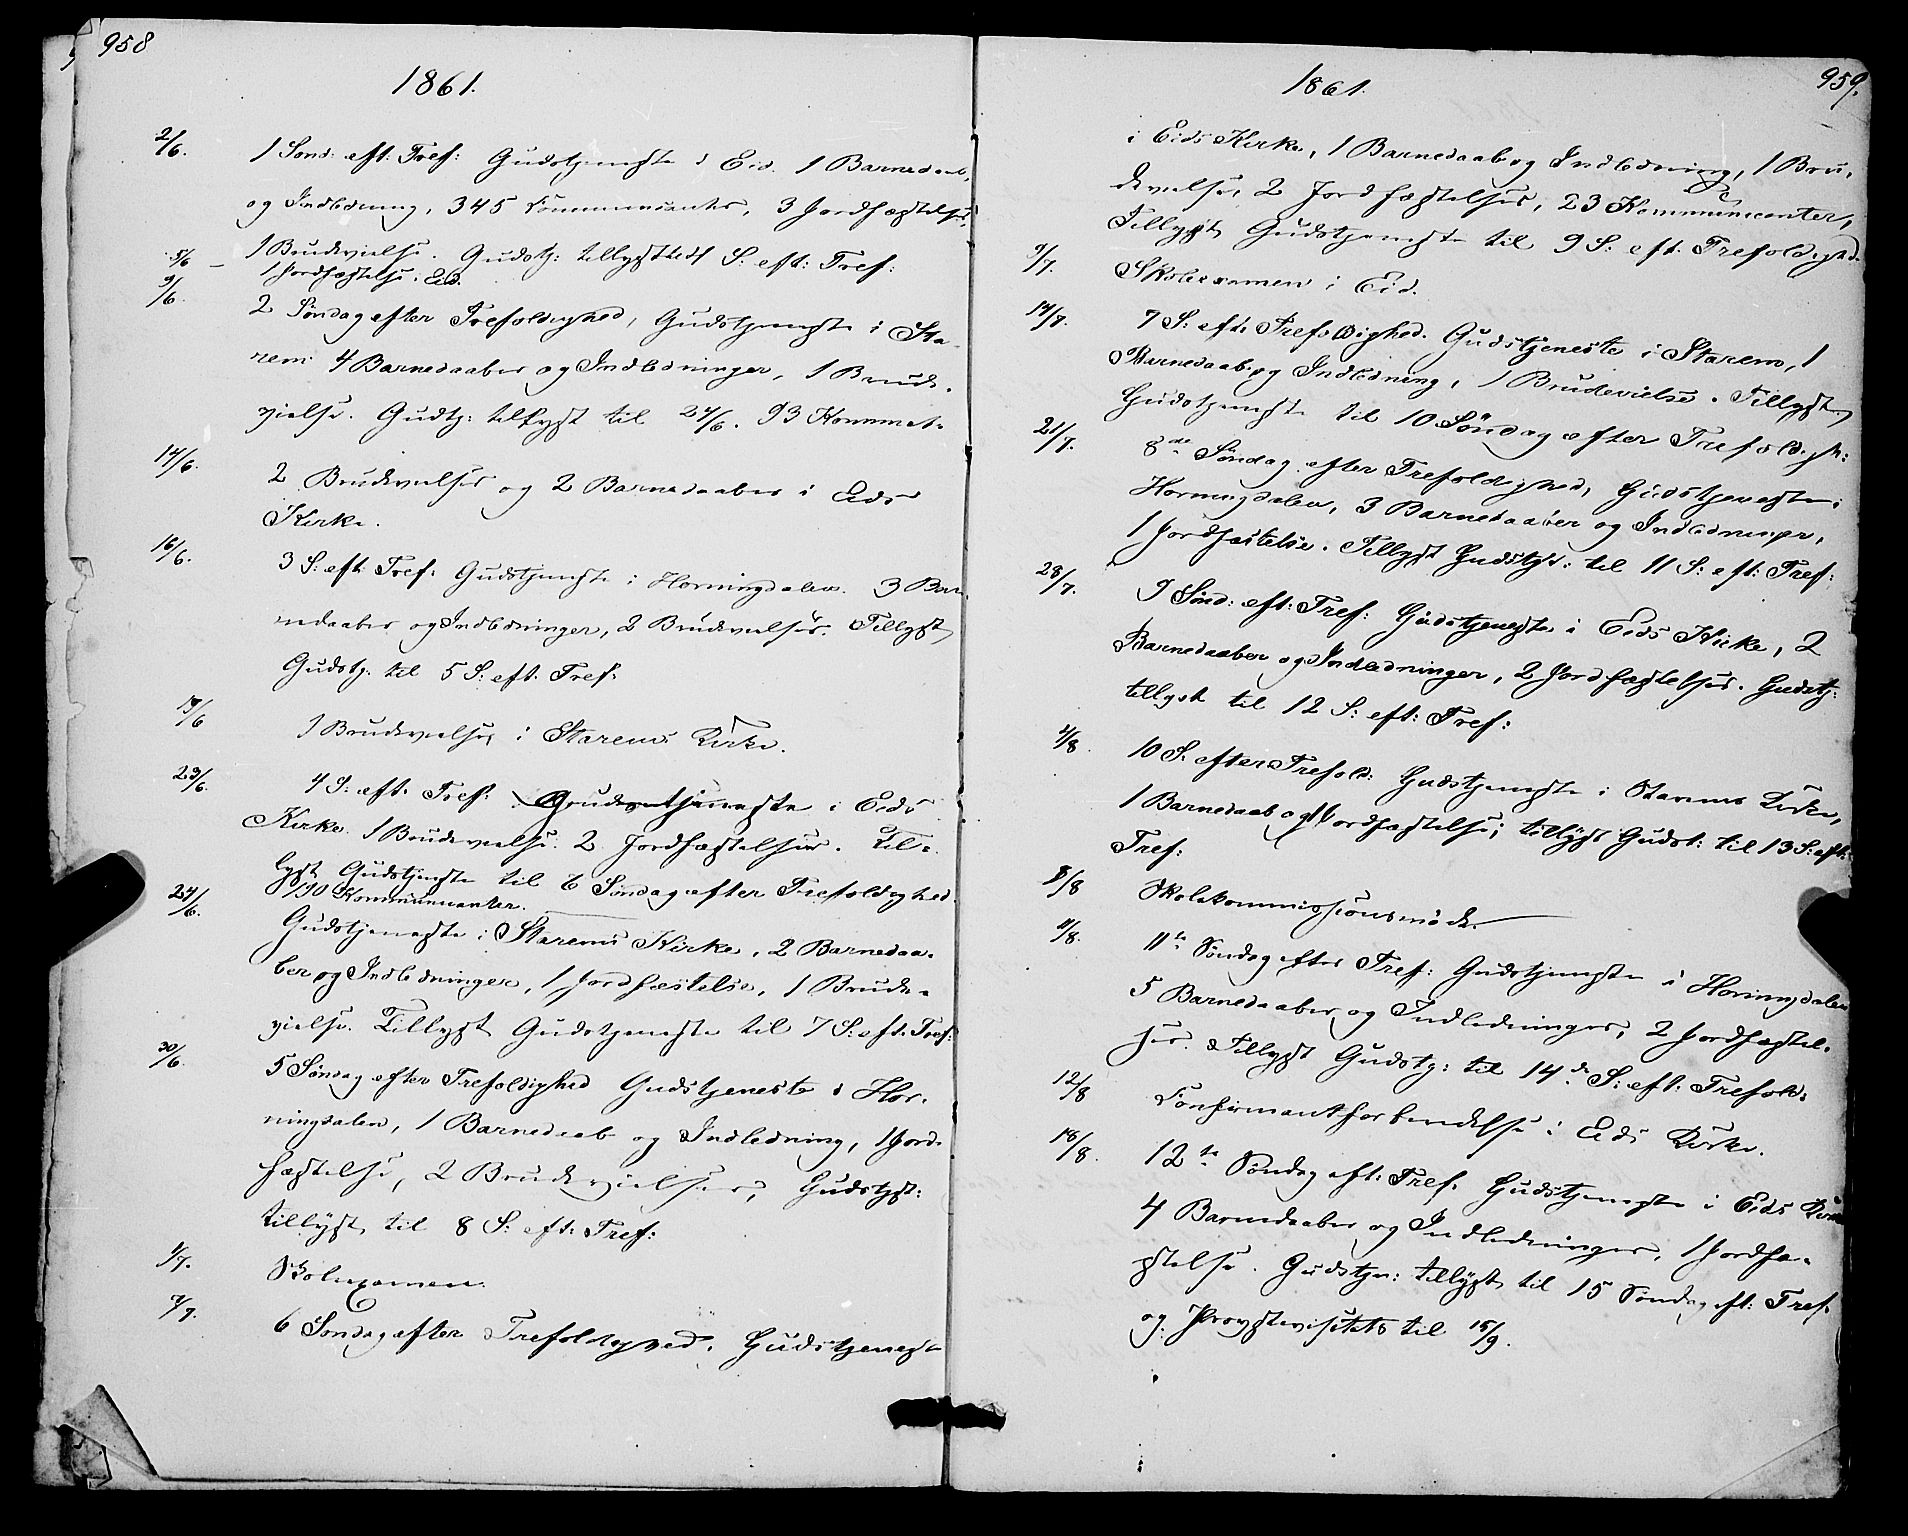 958
1861.
2/6. 1 Sønd: eft: Tref: Gudstjeneste i Eid. 1 Barnedaab,
og Indledning, 345 Communicanter, 3 Jordfæstelser,
1 Brudevielse. Gudstj: tillyst til S: eft: Tref:
5/6 – 1 Jordfæstelse. Eid.
9/6. 2 Søndag efter Trefoldighed, Gudstjeneste i Sta-
rem 4 Barnedaaber og Indledninger, 1 Brude-
vielse. Gudtj: tillyst til 24/6. 93 Kommet.
14/6. 2 Brudevielser og 2 Barnedaaber i Eids
Kirke.
16/6. 3 S: eft: Tref: Gudstjeneste i Horningdalen. 3 Bar-
nedaaber og Indledninger, 2 Brudevielser. Tillyst
Gudstj. til 5 S: eft. Tref:
19/6 1 Brudevielse, i Starems Kirke.
23/6. 4 S: eft. Tref: Gudstjeneste i Eids
Kirke 1 Brudevielse. 2 Jordfæstelser. Til-
lyst Gudstjeneste til 6 Søndag efter Trefoldighed.
190 Kommunicanter.
24/6. Gudstjeneste i Starems Kirke, 2 Barnedaa-
ber og Indledninger, 1 Jordfæstelse, 1 Brude-
vielse. Tillyst Gudstjeneste til 7 S: eft: Tref:
30/6. 5 Søndag efter Trefoldighed Gudstjeneste i Hor-
ningdalen, 1 Barnedaab og Indledning, 1 Jord-
fæstelse, 2 Brudevielser, Gudstjst:
tillyst til 8 S: eft: Tref:
1/7. Skolexamen.
7/7. 6 Søndag efter Trefoldighed. Gudstjeneste
959.
1861.
i Eids Kirke, 1 Barnedaab og Indledning, 1 Bru-
devielse, 2 Jordfæstelser, 23 Kommunicanter,
Tillyst Gudstjeneste til 9 S: eft. Trefoldighed.
9/7. Skolexamen i Eid.
14/7. 7 S: eft: Trefoldighed. Gudstjeneste i Starem, 1
Barnedaab og Indledning, 1 Brudevielse. Tillyst
Gudstjeneste til 10 Søndag efter Trefoldigh:
21/7. 8de Søndag efter Trefoldighed, Gudstjeneste i
Horningdalen, 3 Barnedaaber og Indledninger,
1 Jordfæstelse. Tillyst Gudstjst: til 11 S: eft: Tref:
28/7. 9 Sønd: eft: Tref: Gudstjeneste i Eids Kirke, 2
Barnedaaber og Indledninger, 2 Jordfæstelser. Gudstj:
tillyst til 12 S: eft: Tref:
4/8. 10 S: efter Trefold: Gudstjeneste i Starems Kirke,
1 Barnedaab og 1 Jordfæstelse; tillyst Gudst: til 13 S: eft:
Tref:
8/8 Skolekommissionsmøde.
11/8. 11te Søndag efter Tref: Gudstjeneste i Horningdalen
5 Barnedaaber og Indledninger, 2 Jordfæstel-
ser. Tillyst Gudstj: til 14de S: eft: Trefold:
12/8 Confirmantforberedelse i Eids Kirke.
18/8. 12te Søndag eft: Tref. Gudstjeneste i Eids Kirke
4 Barnedaaber og Indledninger, 1 Jordfæ-
stelse. Gudstjn: tillyst til 15 Søndag eft: Tref.
og Provstevisitats til 15/9.